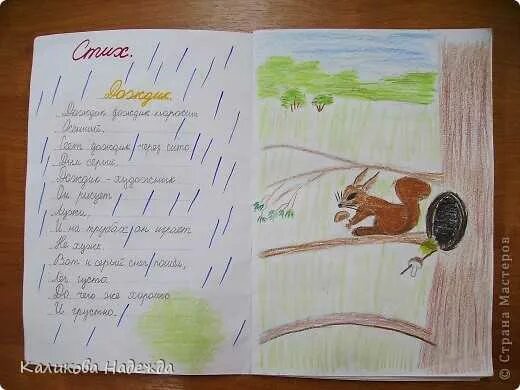 Стих.
Дождик.
Дождик дождик моросит
Осенний.
Сеет дождик через сито
Дым серый.
Дождик - художник
Он рисует
Лужи,
И на трубах он играет
Не хуже.
Вот и серый снег пошёл,
Лёг густо.
До чего же хорошо
И грустно.
Каликова Надежда
© Страна Мастеров